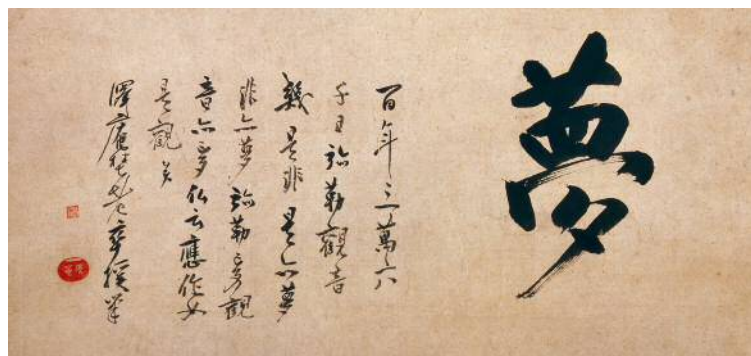 夢
百年三萬六
千日弥勒觀音
幾是非是亦夢
非亦夢弥勒夢觀
音亦夢仏云應作如
是觀矣
澤庵埜老卒援筆